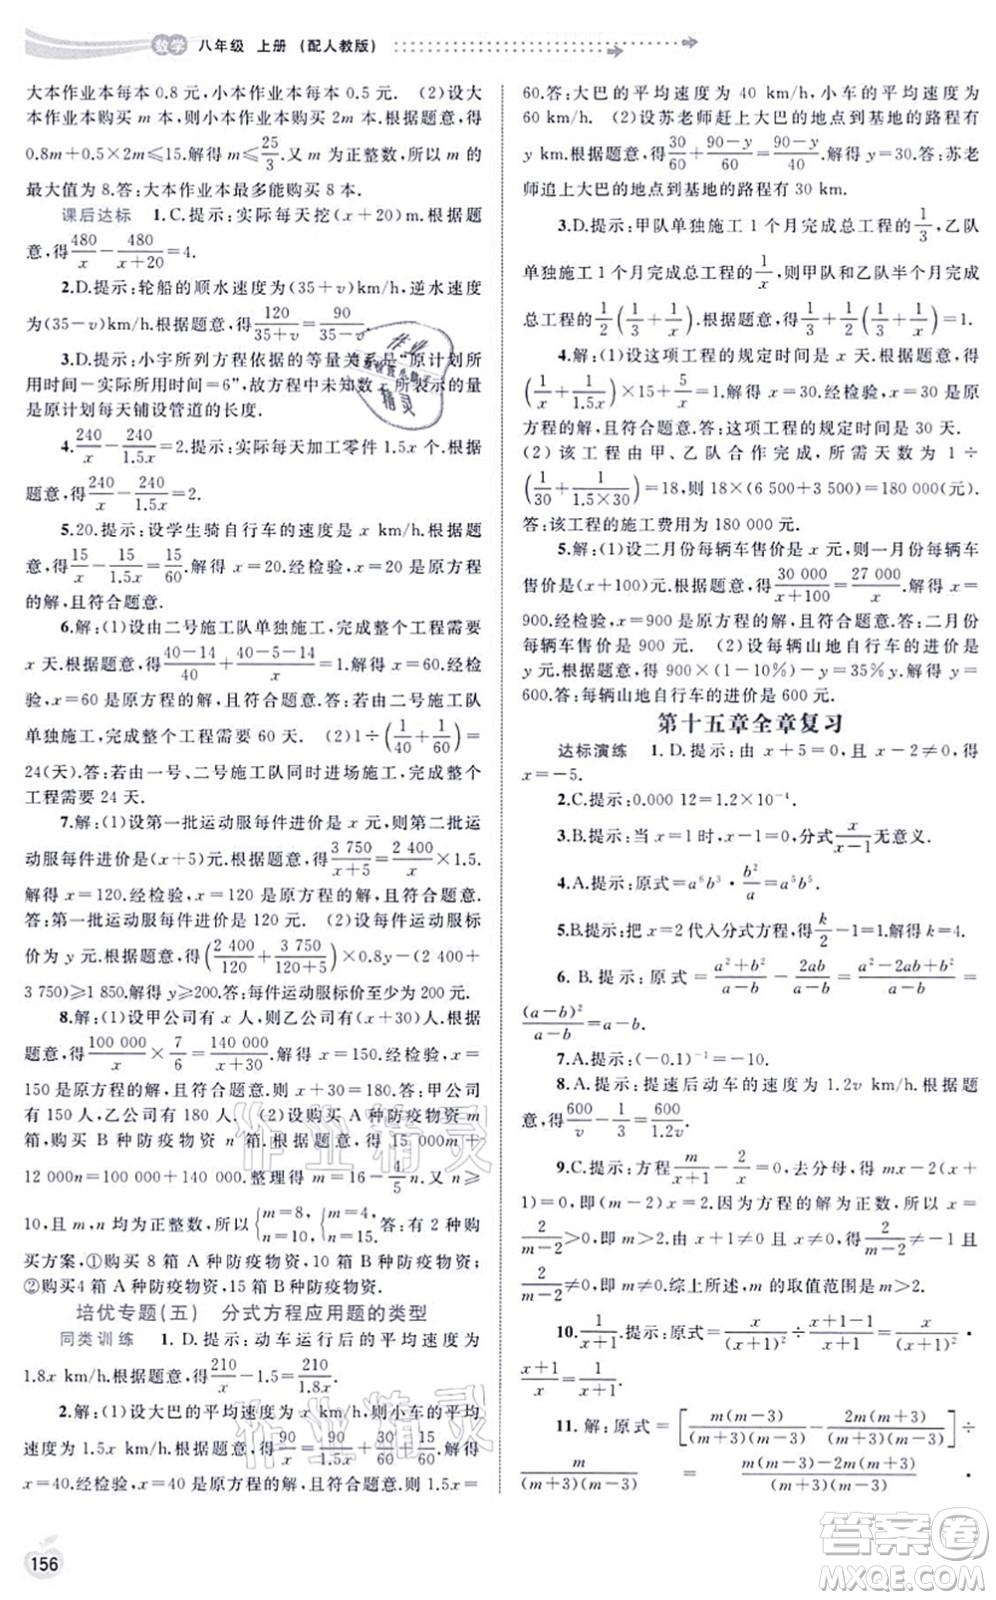 数学 八年级 上册 (配人教版)
大本作业本每本 0.8 元,小本作业本每本 0.5 元. (2)设大
本作业本购买 m 本,则小本作业本购买 2m 本.根据题意,得
0.8m+0.5×2m≤15.解得 m≤25/3.又 m 为正整数,所以 m 的
最大值为 8.答:大本作业本最多能购买 8 本.
课后达标 1.C.提示:实际每天挖(x+20)m.根据题
意,得480/x−480/(x+20)=4.
2.D.提示:轮船的顺水速度为(35+v)km/h,逆水速度
为(35−v)km/h.根据题意,得120/(35+v)=90/(35−v).
3.D.提示:小宇所列方程依据的等量关系是“原计划所
用时间−实际所用时间=6”,故方程中未知数 x 表示的量
是原计划每天铺设管道的长度.
4.240/x−240/1.5x=2.提示:实际每天加工零件 1.5x 个.根
据题意,得240/x−240/1.5x=2.
5.20.提示:设学生骑自行车的速度是 x km/h.根据题
意,得15/x−15/1.5x=15/60.解得 x=20.经检验,x=20 是原方程
的解,且符合题意.
6.解:(1)设由二号施工队单独施工,完成整个工程需要
x 天.根据题意,得(40−14)/40+(40−5−14)/x=1.解得 x=60.经检
验,x=60 是原方程的解,且符合题意.答:若由二号施工队
单独施工,完成整个工程需要 60 天. (2)1÷(1/40+1/60)=
24(天).答:若由一号、二号施工队同时进场施工,完成整个
工程需要 24 天.
7.解:(1)设第一批运动服每件进价是 x 元,则第二批运
动服每件进价是(x+5)元.根据题意,得3 750/(x+5)=2 400/x×1.5.
解得 x=120.经检验,x=120 是原方程的解,且符合题意.
答:第一批运动服每件进价是 120 元. (2)设每件运动服标
价为 y 元.根据题意,得(2 400/120+3 750/(120+5))×0.8y−(2 400+
3 750)≥1 850.解得 y≥200.答:每件运动服标价至少为 200 元.
8.解:(1)设甲公司有 x 人,则乙公司有(x+30)人.根据
题意,得100 000/x×7/6=140 000/(x+30).解得 x=150.经检验,x=
150 是原方程的解,且符合题意.则 x+30=180.答:甲公司
有 150 人,乙公司有 180 人. (2)设购买 A 种防疫物资 m
箱,购买 B 种防疫物资 n 箱.根据题意,得 15 000m+
12 000n=100 000+140 000.整理得 m=16−4/5n.又 n≥
10,且 m,n 均为正整数,所以{m=8, n=10, {m=4, n=15. 答:有 2 种购
买方案,①购买 8 箱 A 种防疫物资,10 箱 B 种防疫物资;
②购买4 箱 A 种防疫物资,15 箱 B 种防疫物资.
培优专题(五) 分式方程应用题的类型
同类训练 1.D.提示:动车运行后的平均速度为
1.8x km/h.根据题意,得210/x−1.5=210/1.8x.
2.解:(1)设大巴的平均速度为 x km/h,则小车的平均
速度为 1.5x km/h.根据题意,得90/x=90/1.5x+30/60+15/60.解得 x=
40.经检验,x=40 是原方程的解,且符合题意.则 1.5x=
60.答:大巴的平均速度为 40 km/h,小车的平均速度为
60 km/h. (2)设苏老师赶上大巴的地点到基地的路程有
y km.根据题意,得30/60+(90−y)/60=(90−y)/40.解得 y=30.答:苏老
师追上大巴的地点到基地的路程有 30 km.
3.D.提示:甲队单独施工 1 个月完成总工程的1/3,乙队
单独施工 1 个月完成总工程的1/x,则甲队和乙队半个月完成
总工程的1/2(1/3+1/x).根据题意,得1/3+1/2(1/3+1/x)=1.
4.解:(1)设这项工程的规定时间是 x 天.根据题意,得
(1/x+1/1.5x)×15+5/x=1.解得 x=30.经检验,x=30 是原
方程的解,且符合题意.答:这项工程的规定时间是 30 天.
(2)该工程由甲、乙队合作完成,所需天数为 1÷
(1/30+1/(1.5×30))=18,则 18×(6 500+3 500)=180 000(元).
答:该工程的施工费用为 180 000 元.
5.解:(1)设二月份每辆车售价是 x 元,则一月份每辆车
售价是(x+100)元.根据题意,得30 000/(x+100)=27 000/x.解得 x=
900.经检验,x=900 是原方程的解,且符合题意.答:二月份
每辆车售价是 900 元. (2)设每辆山地自行车的进价是
y 元.根据题意,得 900×(1−10%)−y=35%y.解得 y=
600.答:每辆山地自行车的进价是 600 元.
第十五章全章复习
达标演练 1.D.提示:由 x+5=0,且 x−2≠0,得
x=−5.
2.C.提示:0.000 12=1.2×10⁻⁴.
3.B.提示:当 x=1 时,x−1=0,分式x/(x−1)无意义.
4.A.提示:原式=a⁶b³·b²/a=a⁵b⁵.
5.B.提示:把 x=2 代入分式方程,得k/2−1=1.解得 k=4.
6.B.提示:原式=(a²+b²)/(a−b)−2ab/(a−b)=(a²−2ab+b²)/(a−b)=
(a−b)²/(a−b)=a−b.
7.A.提示:(−0.1)⁻¹=−10.
8.A.提示:提速后动车的速度为 1.2v km/h.根据题
意,得600/v−1/3=600/1.2v.
9.C.提示:方程m/(x+1)−2/x=0,去分母,得 mx−2(x+
1)=0,即(m−2)x=2.因为方程的解为正数,所以 x=
2/(m−2)>0,即 m>2.又 x+1≠0,即 x≠−1,所以
2/(m−2)≠−1,即 m≠0.综上所述,m 的取值范围是 m>2.
10.1/(x+1).提示:原式=x/(x+1)²÷x/(x+1)=x/(x+1)²·
(x+1)/x=1/(x+1).
11.解:原式=[m(m−3)/((m+3)(m−3))−2m(m+3)/((m+3)(m−3))]÷
m/((m+3)(m−3))=(m(m−3)−2m(m+3))/((m+3)(m−3))·
156
作业精灵
作业精灵
答案圈
MXQE.COM